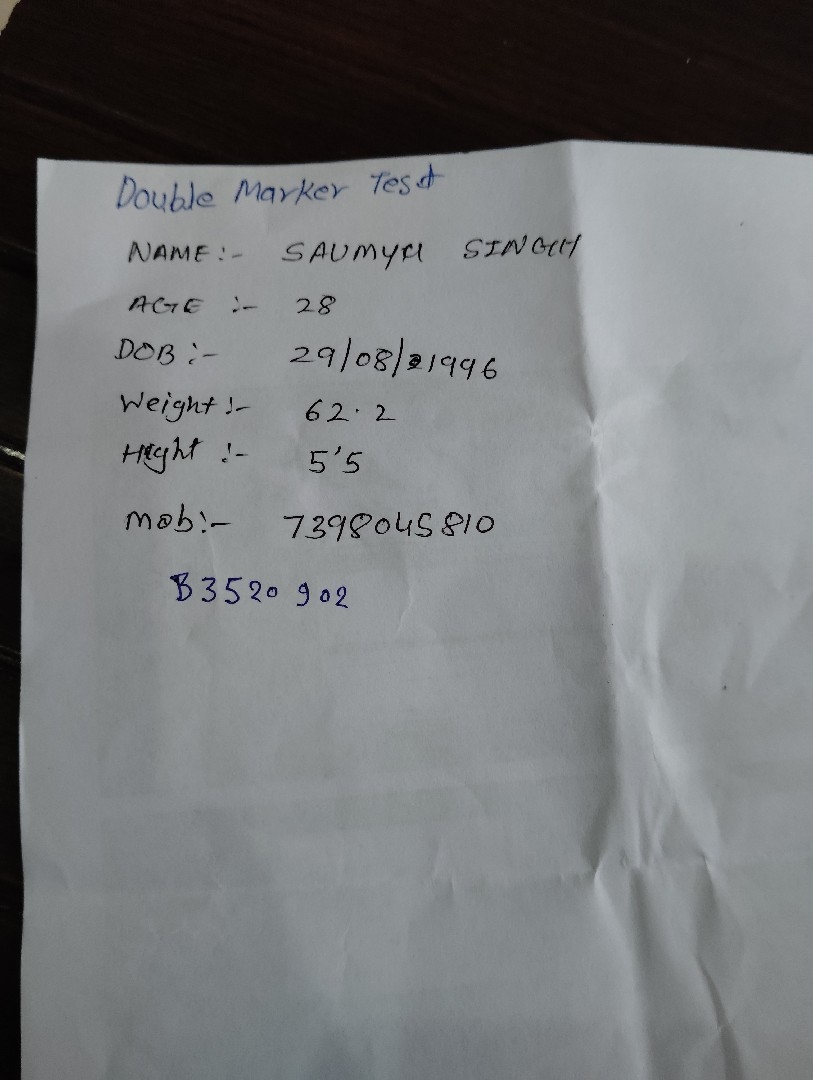 Double Marker Test
NAME :- SAUMYA SINGH
AGE :- 28
DOB :- 29/08/1996
Weight :- 62.2
Hight :- 5'5
mob :- 7398045810
B3520902